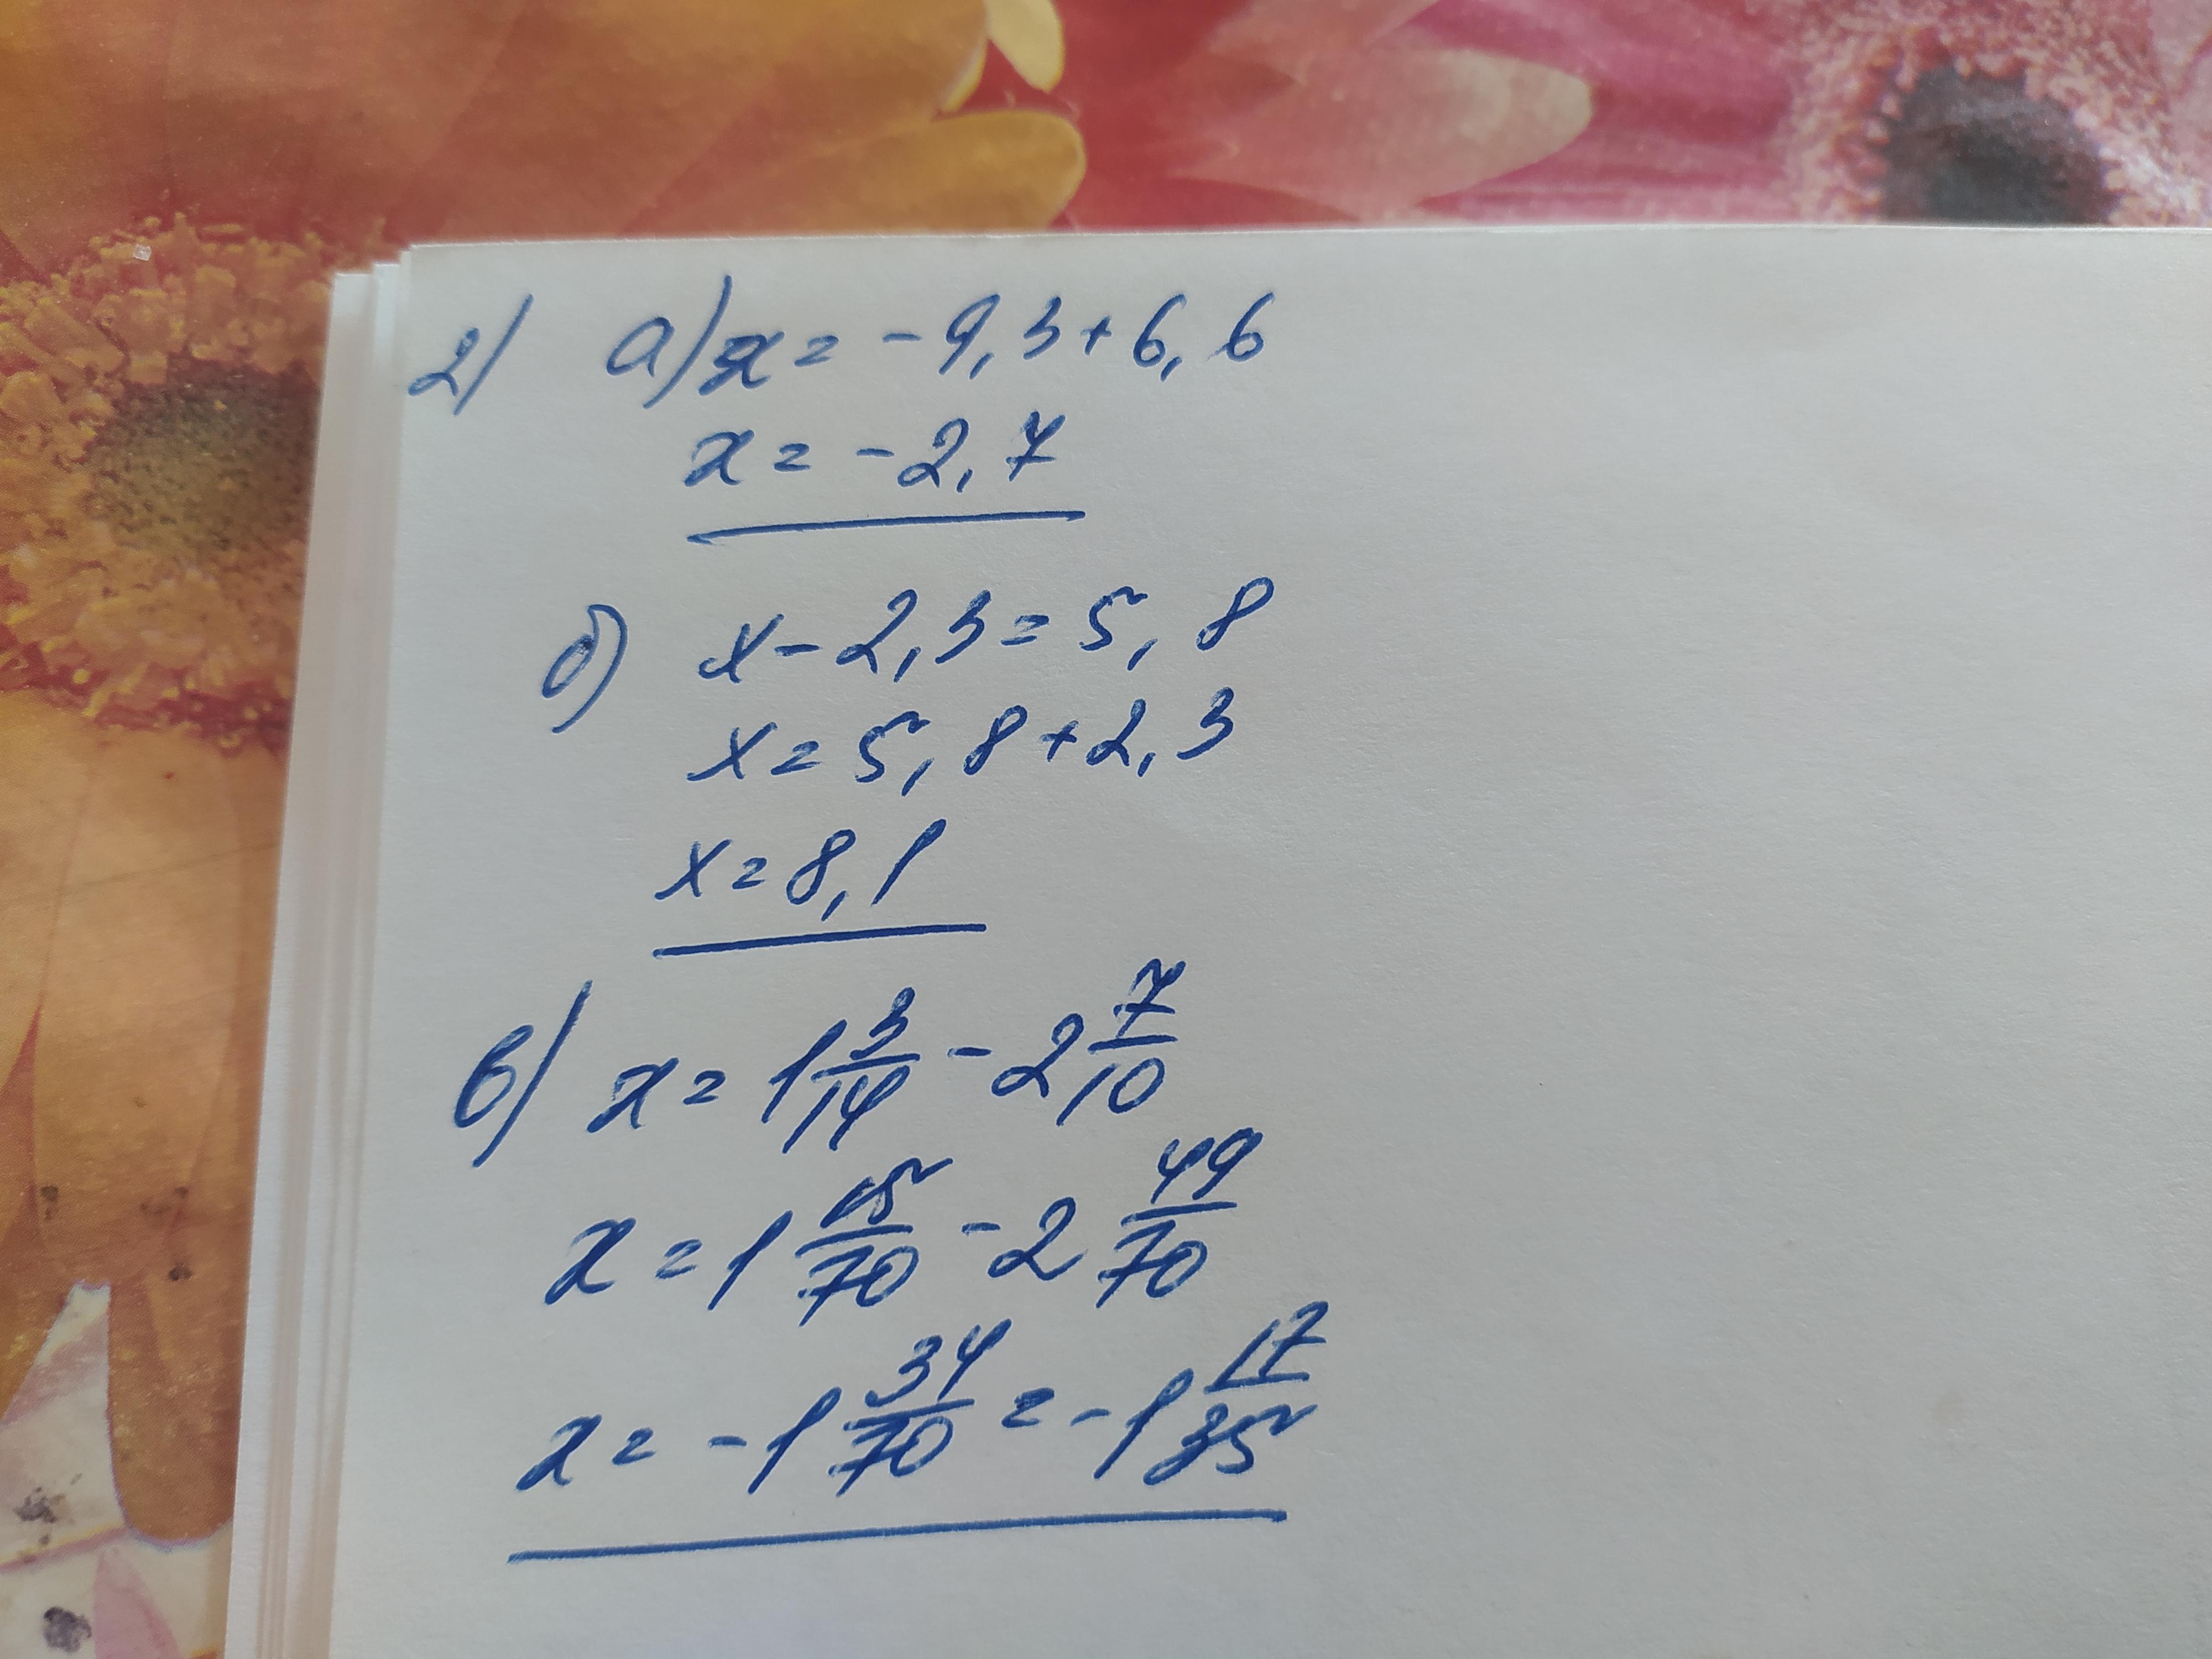 2) а) x = -9,3+6,6
x = -2,7
б) x-2,3=5,8
x=5,8+2,3
x=8,1
в) x = 1 3/14 - 2 7/10
x = 1 15/70 - 2 49/70
x = -1 34/70 = -1 17/35